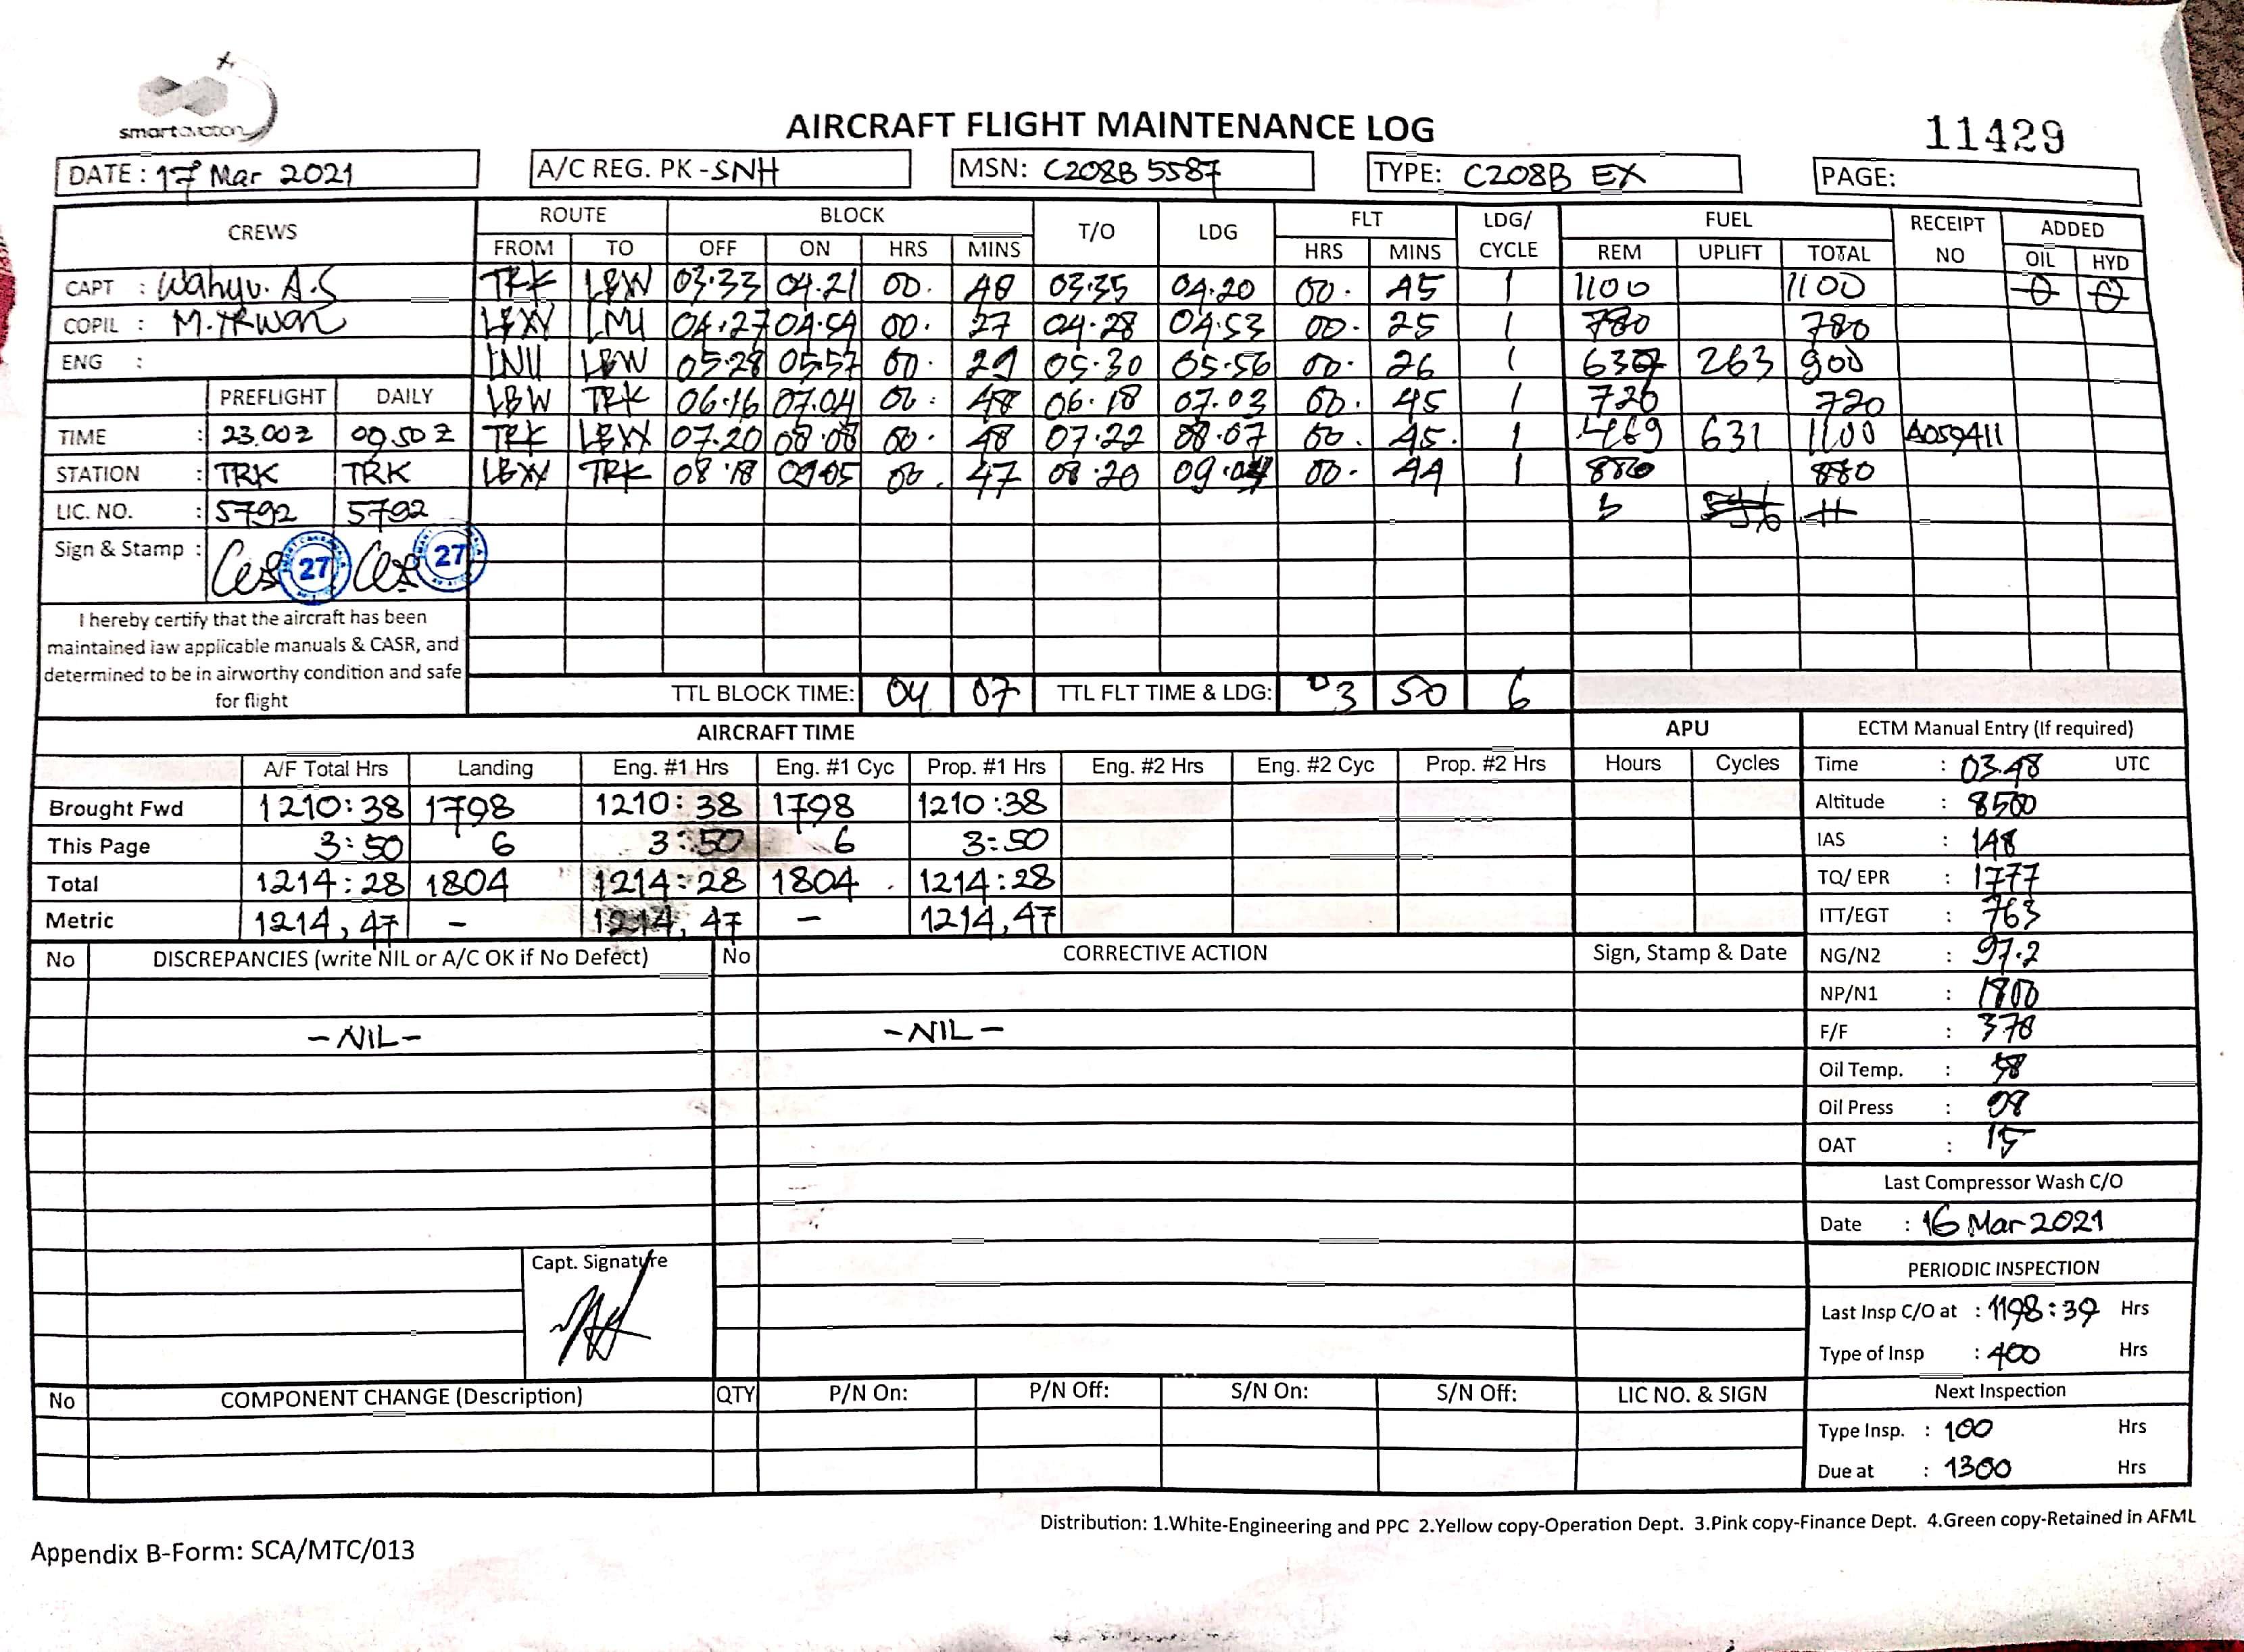 smart aviation
AIRCRAFT FLIGHT MAINTENANCE LOG
11429
DATE : 17 Mar 2021 A/C REG. PK - SNH MSN: C208B 5587 TYPE: C208B EX PAGE:
CREWS ROUTE BLOCK T/O LDG FLT LDG/ CYCLE FUEL RECEIPT NO ADDED
FROM TO OFF ON HRS MINS HRS MINS REM UPLIFT TOTAL OIL HYD
CAPT : Wahyu. A.S TRK LBW 03.33 04.21 00. 48 03.35 04.20 00. 45 1 1100 1100 0 0
COPIL : M. IRWAN LBW LNU 04.27 04.54 00. 27 04.28 04.53 00. 25 1 780 780
ENG : LNU LBW 05.28 05.57 00. 29 05.30 05.56 00. 26 1 637 263 900
PREFLIGHT DAILY LBW TRK 06.16 07.04 00. 48 06.18 07.03 00. 45 1 720 720
TIME : 23.00Z 09.50Z TRK LBW 07.20 08.08 00. 48 07.22 08.07 00. 45. 1 469 631 1100 A059411
STATION : TRK TRK LBW TRK 08.18 09.05 00. 47 08.20 09.04 00. 44 1 880 880
LIC. NO. : 5792 5792
Sign & Stamp : 27 27
I hereby certify that the aircraft has been
maintained iaw applicable manuals & CASR, and
determined to be in airworthy condition and safe
for flight
TTL BLOCK TIME: 04 07 TTL FLT TIME & LDG: 03 50 6
AIRCRAFT TIME APU ECTM Manual Entry (If required)
A/F Total Hrs Landing Eng. #1 Hrs Eng. #1 Cyc Prop. #1 Hrs Eng. #2 Hrs Eng. #2 Cyc Prop. #2 Hrs Hours Cycles Time : 03.48 UTC
Brought Fwd 1210:38 1798 1210:38 1798 1210:38 Altitude : 8500
This Page 3:50 6 3:50 6 3:50 IAS : 148
Total 1214:28 1804 1214:28 1804 1214:28 TQ/ EPR : 1777
Metric 1214,47 - 1214,47 - 1214,47 ITT/EGT : 763
No DISCREPANCIES (write NIL or A/C OK if No Defect) No CORRECTIVE ACTION Sign, Stamp & Date NG/N2 : 97.2
NP/N1 : 1800
- NIL - - NIL - F/F : 370
Oil Temp. : 58
Oil Press : 98
OAT : 15
Last Compressor Wash C/O
Date : 16 Mar 2021
Capt. Signature
PERIODIC INSPECTION
Last Insp C/O at : 1198:39 Hrs
Type of Insp : 400 Hrs
No COMPONENT CHANGE (Description) QTY P/N On: P/N Off: S/N On: S/N Off: LIC NO. & SIGN Next Inspection
Type Insp. : 100 Hrs
Due at : 1300 Hrs
Distribution: 1.White-Engineering and PPC 2.Yellow copy-Operation Dept. 3.Pink copy-Finance Dept. 4.Green copy-Retained in AFML
Appendix B-Form: SCA/MTC/013